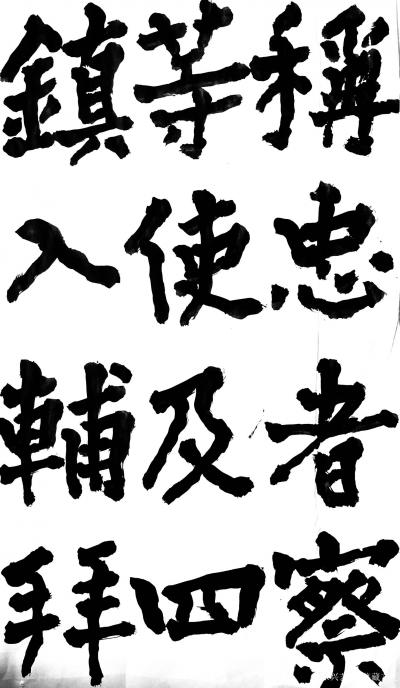 稱忠者察
等使及四
鎮入輔拜